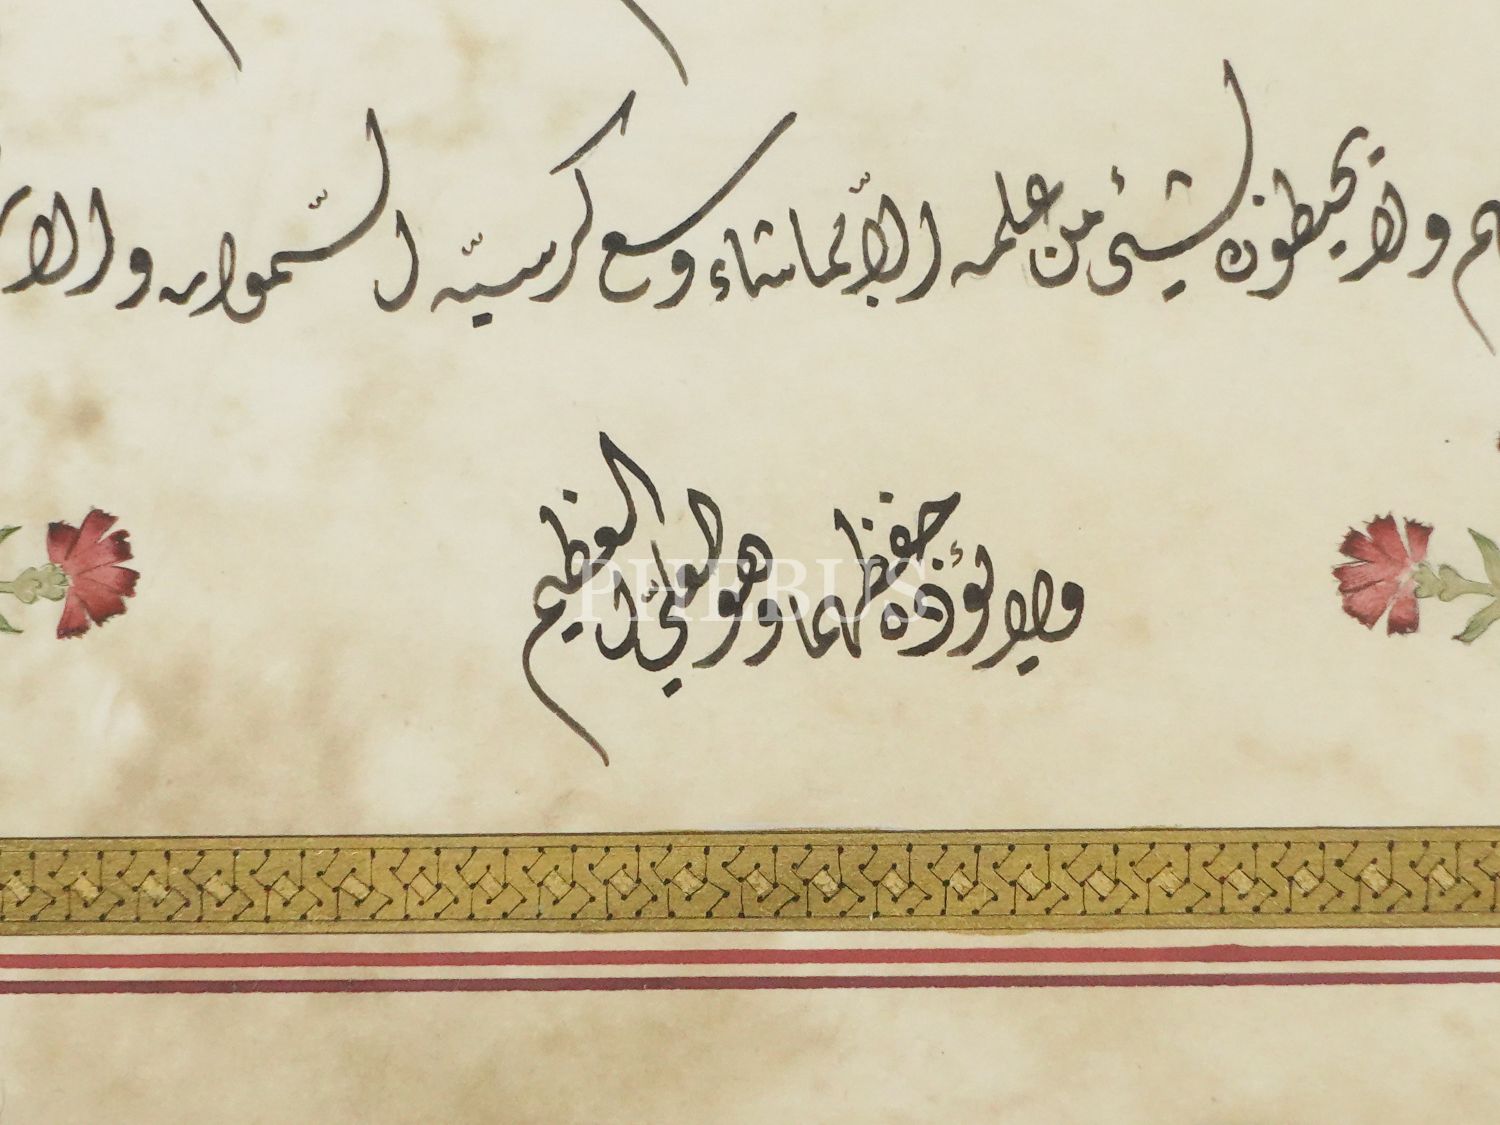 ولا يحيطون بشيئ من علمه الّا بما شاء وسع كرسيّه السّموات والار
ولا يؤده حفظهما وهو العليّ العظيم
PHEBUS